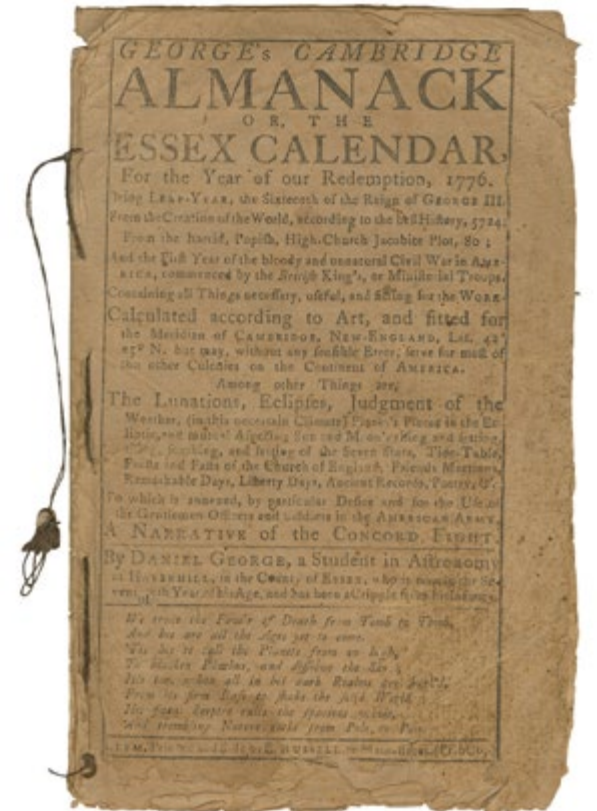 GEORGE's CAMBRIDGE
ALMANACK
OR, THE
ESSEX CALENDAR,
For the Year of our Redemption, 1776.
Being LEAP-YEAR, the Sixteenth of the Reign of GEORGE III.
From the Creation of the World, according to the best History, 5724.
From the horrid, Popish, High-Church Jacobite Plot, 80;
And the First Year of the bloody and unnatural Civil War in AME-
RICA, commenced by the British King's, or Ministerial Troops.
Containing all Things necessary, useful, and fitting for the WORK.
Calculated according to Art, and fitted for
the Meridian of CAMBRIDGE, NEW-ENGLAND, Lat. 42°
25° N. but may, without any sensible Error, serve for most of
the other Colonies on the Continent of AMERICA.
Among other Things are,
The Lunations, Eclipses, Judgment of the
Weather, (in this uncertain Climate) Places in the Ec-
liptic, and mutual Aspects, Sun and Moon's rising and setting,
rising, southing, and setting of the Seven Stars, Tide-Table,
Feasts and Fasts of the Church of England, Friends Meetings,
Remarkable Days, Liberty Days, Ancient Records, Poetry, &c.
To which is annexed, by particular Desire and for the Use of
the Gentlemen Officers and Soldiers in the AMERICAN ARMY,
A NARRATIVE of the CONCORD FIGHT.
By DANIEL GEORGE, a Student in Astronomy
at HAVERHILL, in the County of ESSEX, who is now in the Se-
venteenth Year of his Age, and has been a Cripple from
the Power of Death from Tomb to Tomb,
And his are all the Ages yet to come.
'Tis his to call the Planets from on high,
To blacken Phœbus, and dissolve the Sky;
His too, when all in his dark Realms are hurl'd,
From its firm Base to shake the solid World;
His fatal Sceptre rules the spacious whole,
And trembling Nature rocks from Pole to Pole.
E. RUSSELL